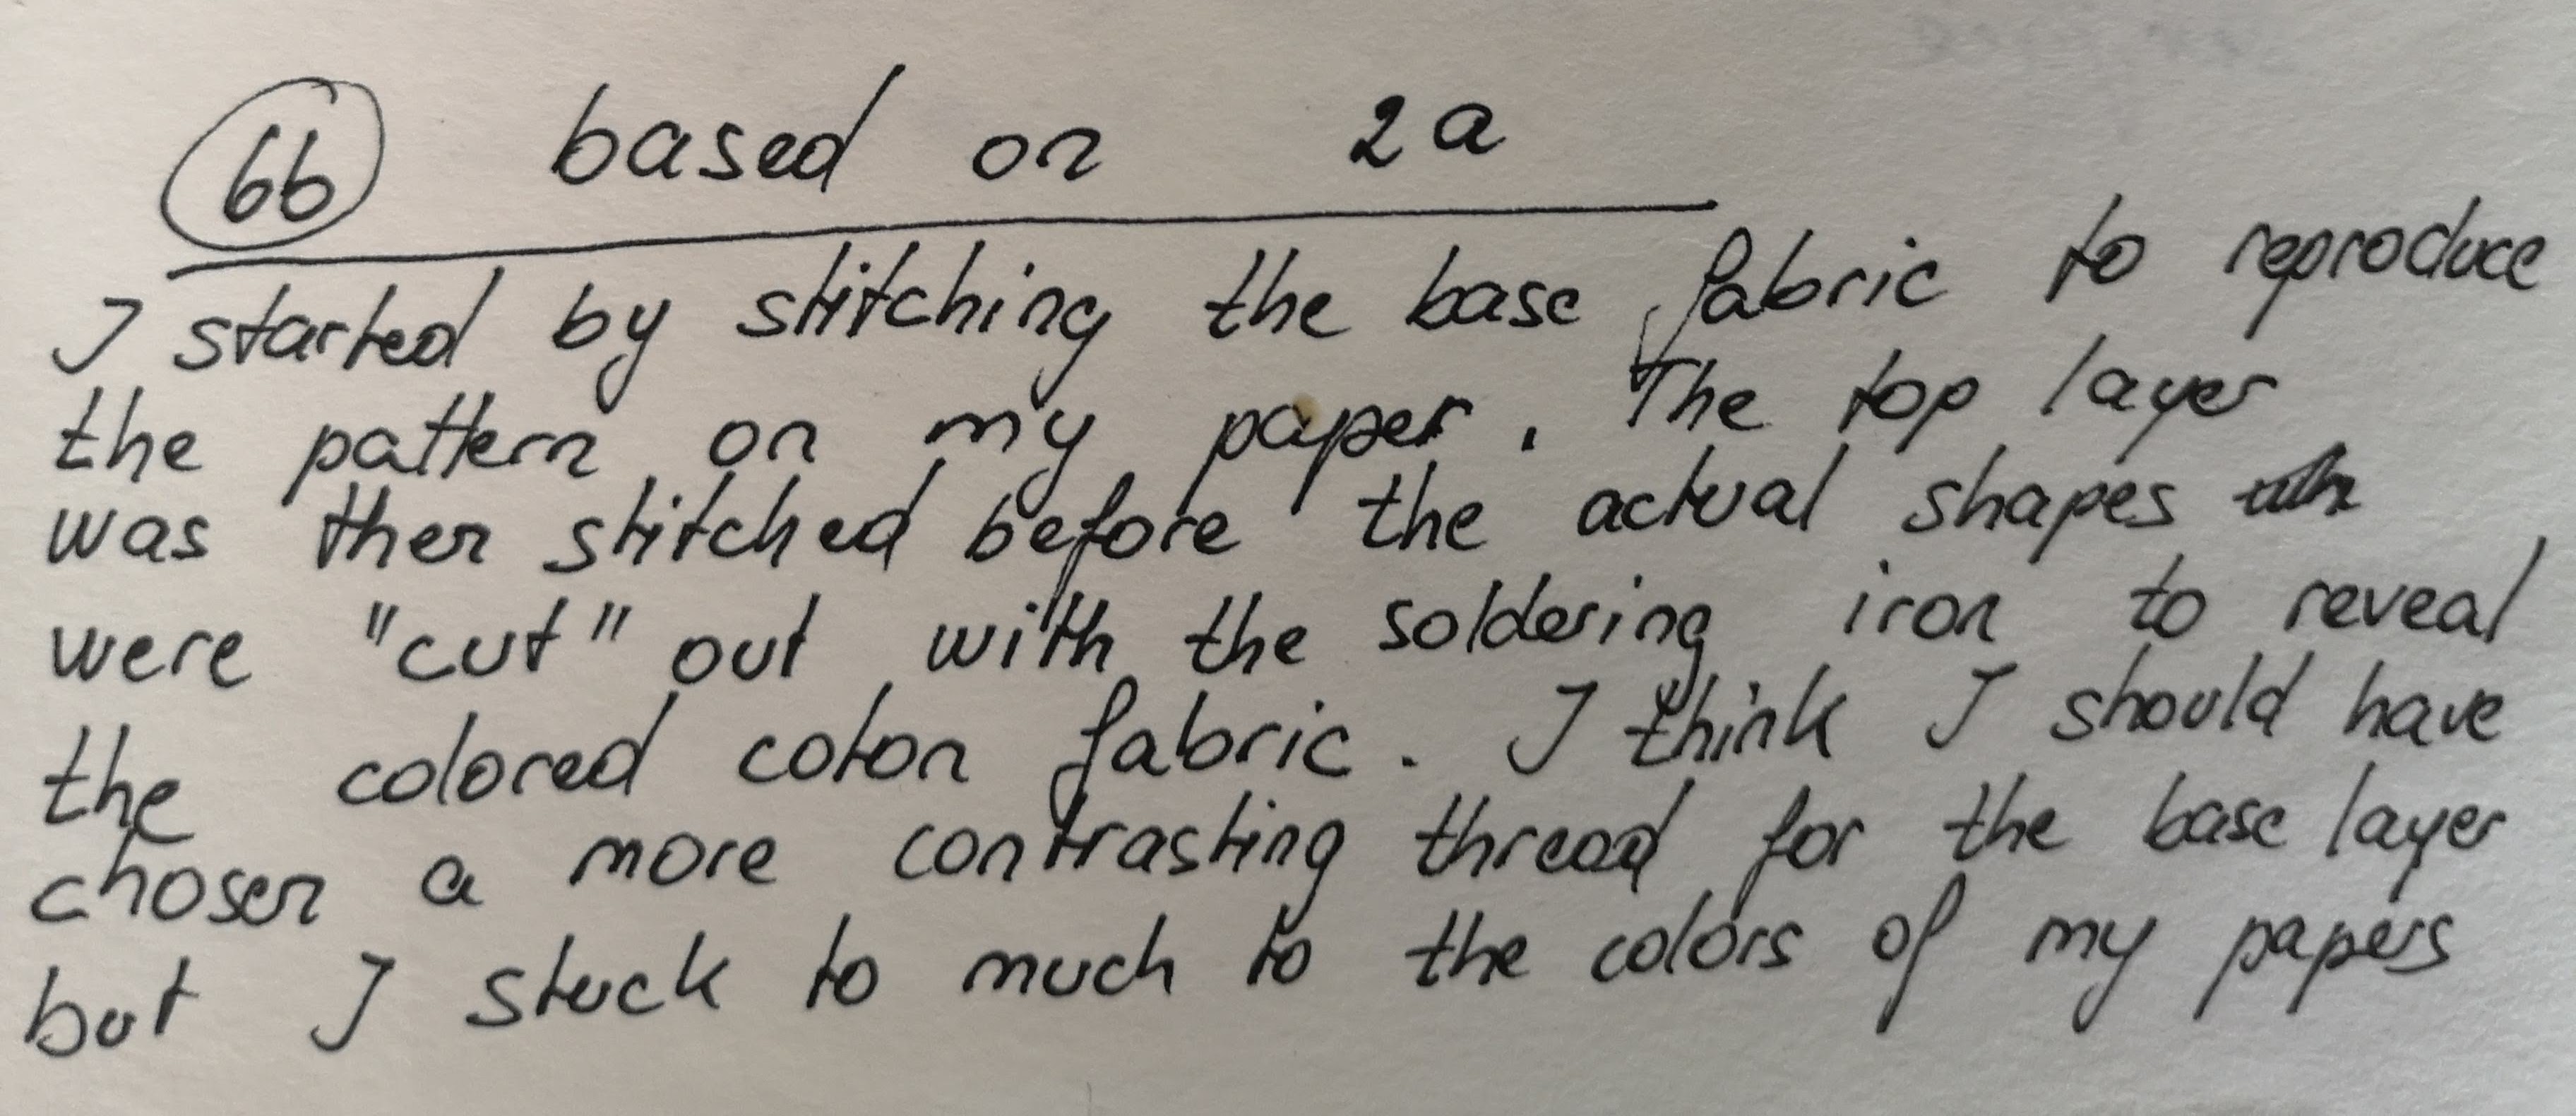 6b based on 2a
I started by stitching the base fabric to reproduce
the pattern on my paper. The top layer
was then stitched before the actual shapes
were "cut" out with the soldering iron to reveal
the colored coton fabric. I think I should have
chosen a more contrasting thread for the base layer
but I stuck to much to the colors of my papers